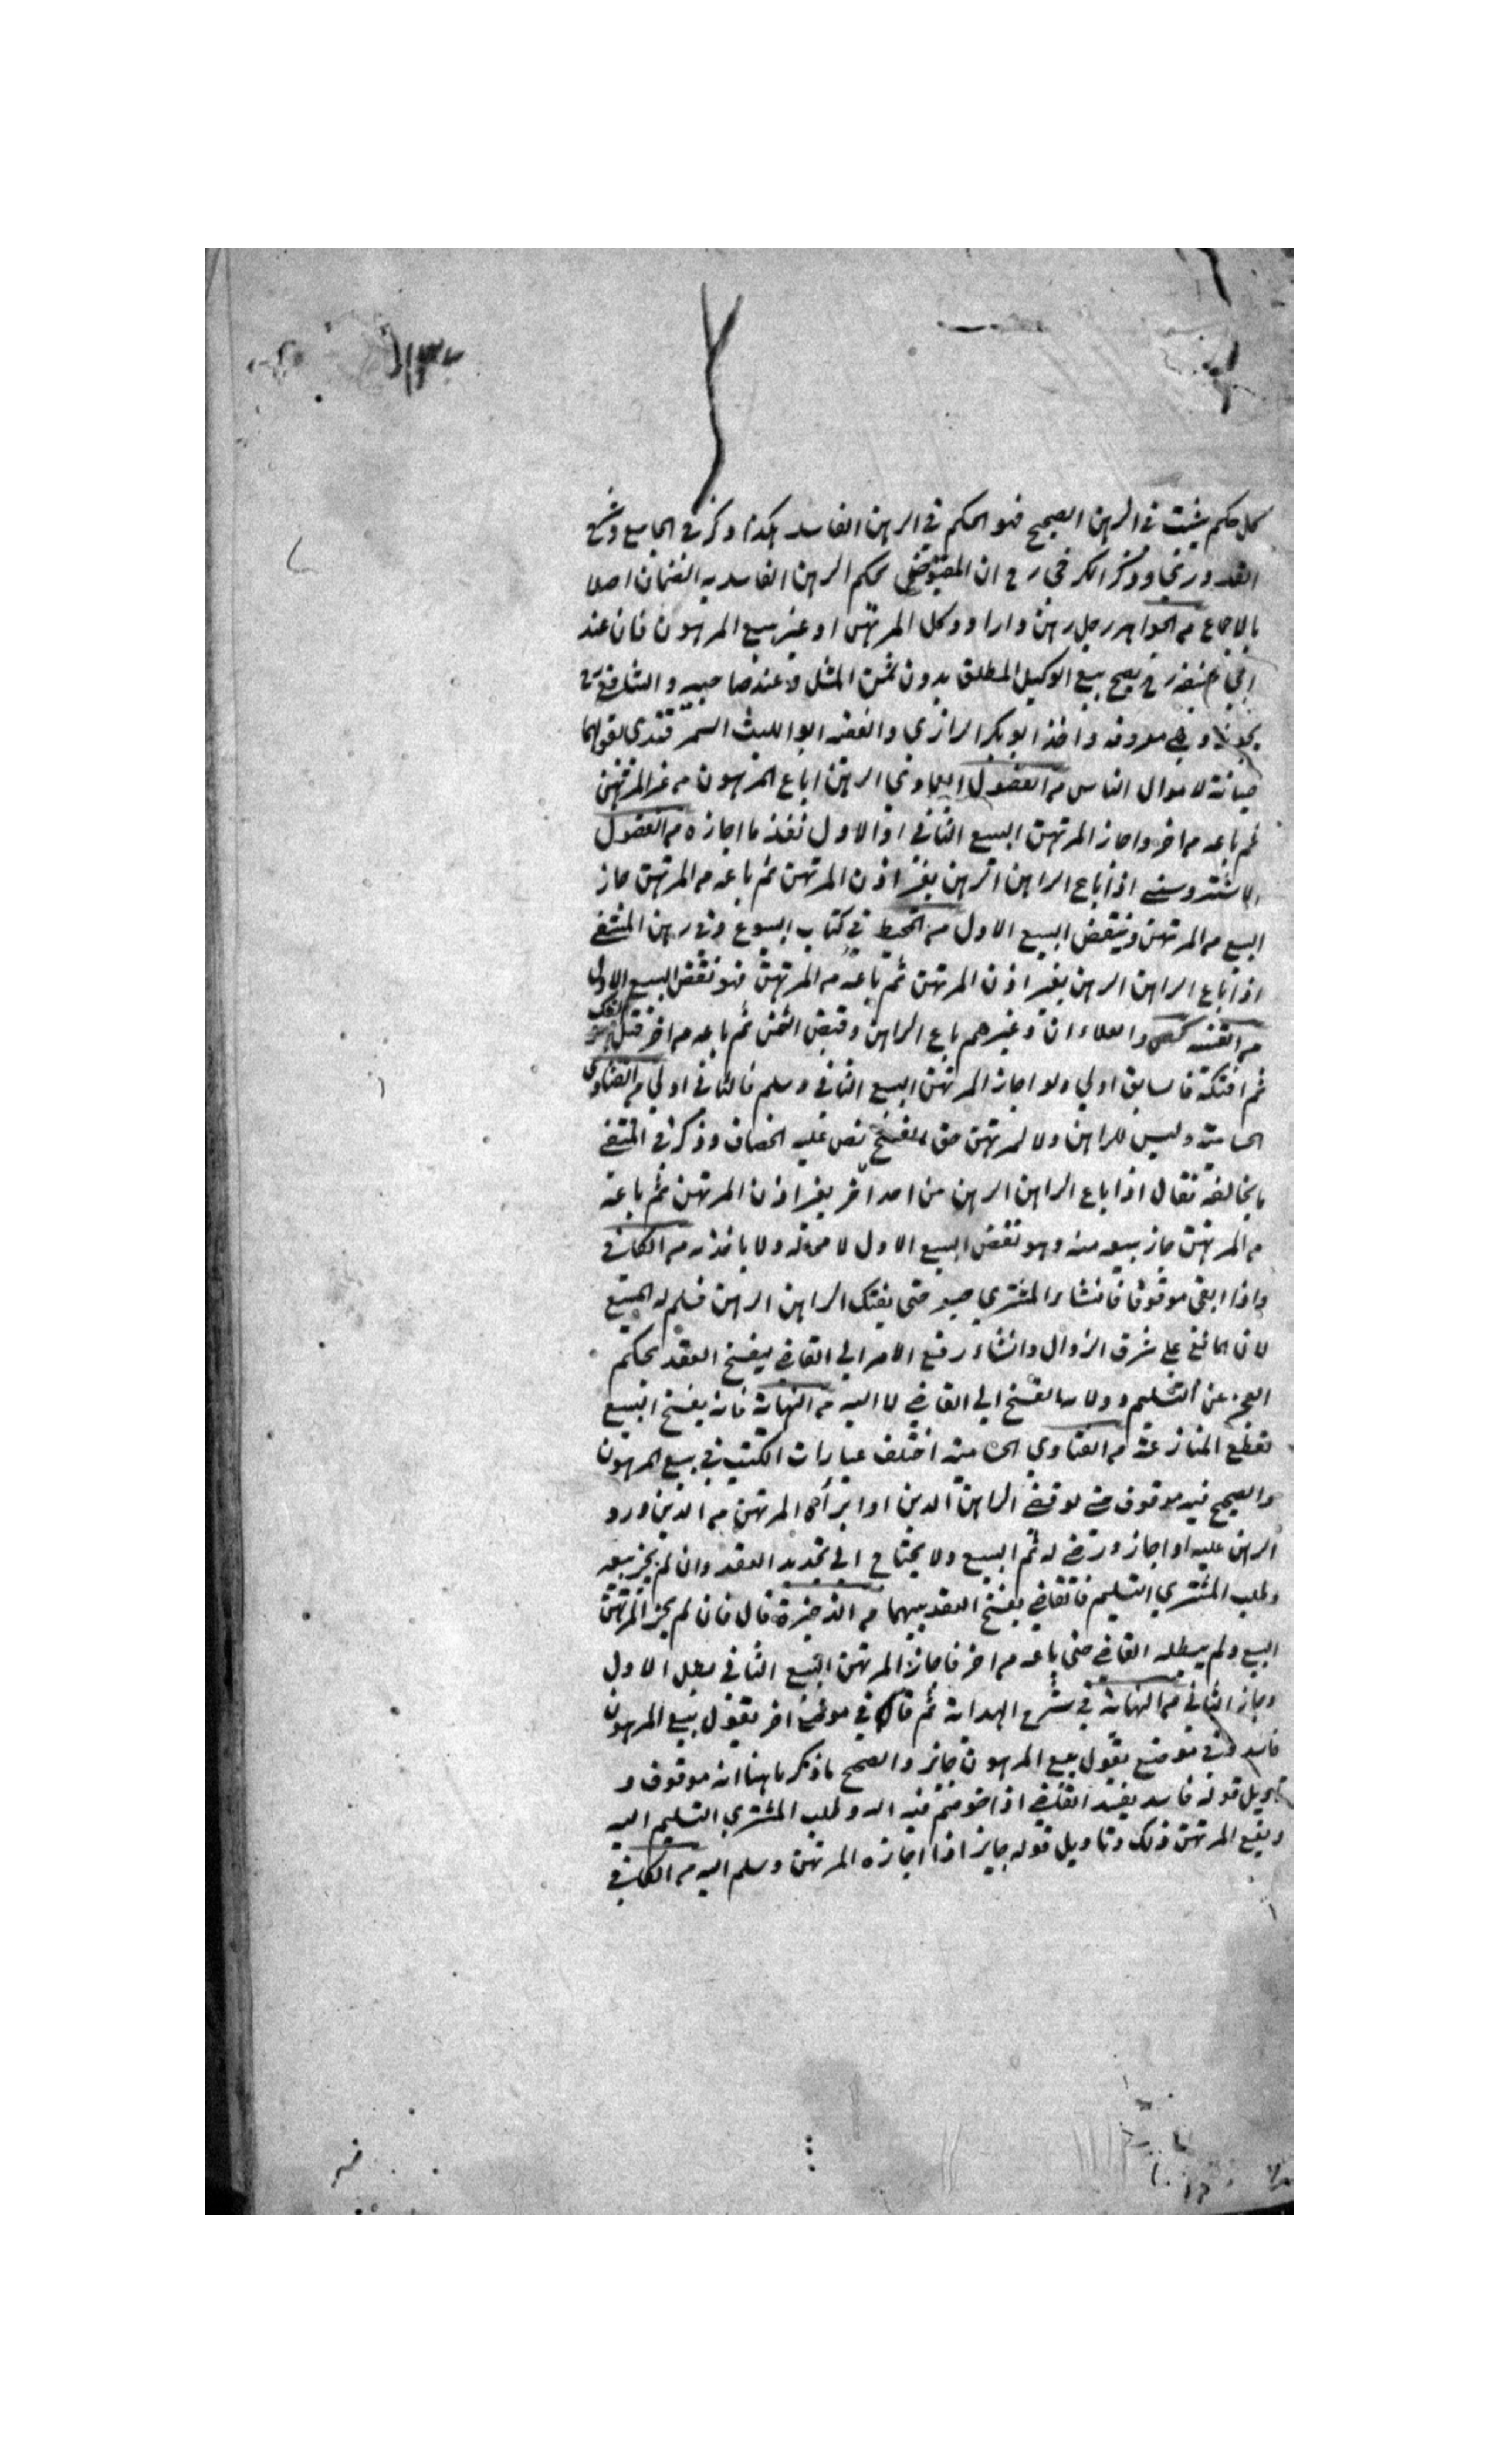 كل حكم يثبت في الرهن الصحيح فهو الحكم في الرهن الفاسد هكذا ذكر في الجامع وشرح
القدوري وذكر الكرخي رح ان المقبوض بحكم الرهن الفاسد به الضمان اصلا
بالاجماع من الجواهر رجل رهن دارا ووكل المرتهن او غير ببيع المرهون فان عند
ابي حنيفة رح يصح بيع الوكيل المطلق بدون ثمن المثل وعند صاحبيه والشافعي رح
وهي معروفة واخذ ابو بكر الرازي والفقيه ابو الليث السمرقندي بقولهما
صيانة لاموال الناس من الفصول العمادي الراهن اباع المرهون من غير المرتهن
ثم باعه من اخر واجاز المرتهن البيع الثاني او الاول نفذ ما اجازه من الفصول
الاشتروسني اذا باع الراهن الرهن بغير اذن المرتهن ثم باعه من المرتهن جاز
البيع من المرتهن وينتقض البيع الاول من المحيط في كتاب البيوع وفي رهن المنتقى
اذا باع الراهن الرهن بغير اذن المرتهن ثم باعه من المرتهن فهو نقض البيع الاول
من القنية والعلاء ان وغيرهم باع الراهن وقبض الثمن ثم باعه من اخر قبل الفك
ثم افتكه فالسابق اولي ولو اجاز المرتهن البيع الثاني وسلم فالثاني اولي من الفتاوي
وليس للراهن ولا لمرتهن حق الفسخ نص عليه الخصاف وذكر في المنتقى
ما يخالفه فقال اذا باع الراهن الرهن من احد اخر بغير اذن المرتهن ثم باعه
من المرتهن جاز بيعه منه وهو نقض البيع الاول لا محالة ولا ياخذ به من الكافي
واذا ابقى موقوفا فانشاء المشتري صبر حتى يفتك الراهن الرهن فيسلم له المبيع
لان المانع علي شرف الزوال وانشاء رفع الامر الي القاضي ليفسخ العقد بحكم
العجز عن التسليم وولاية الفسخ الي القاضي لا اليه من النهاية فانه يفسخ البيع
لقطع المنازعة من الفتاوي اختلف عبارات الكتب في بيع المرهون
والصحيح فيه موقوف حتى لو قضى الراهن الدين او ابرأه المرتهن من الدين ورد
الرهن عليه او اجاز ورضي له ثم البيع ولا يحتاج الي تجديد العقد وان لم يجز بيعه
وطلب المشتري التسليم فالقاضي يفسخ العقد بينهما من الذخيرة قال فان لم يجز المرتهن
البيع ولم يبطله القاضي حتى باعه من اخر فاجاز المرتهن البيع الثاني بطل الاول
وجاز الثاني من النهاية في شرح الهداية ثم قال في موضع اخر يقول بيع المرهون
فاسد وفي موضع يقول بيع المرهون جائز والصحيح ما ذكر ما هنا انه موقوف و
تاويل قوله فاسد يفسد القاضي اذا خوصم فيه اليه وطلب المشتري التسليم اليه
ويمنع المرتهن ذلك وتاويل قوله جايز اذا اجازه المرتهن وسلم اليه من الكافي